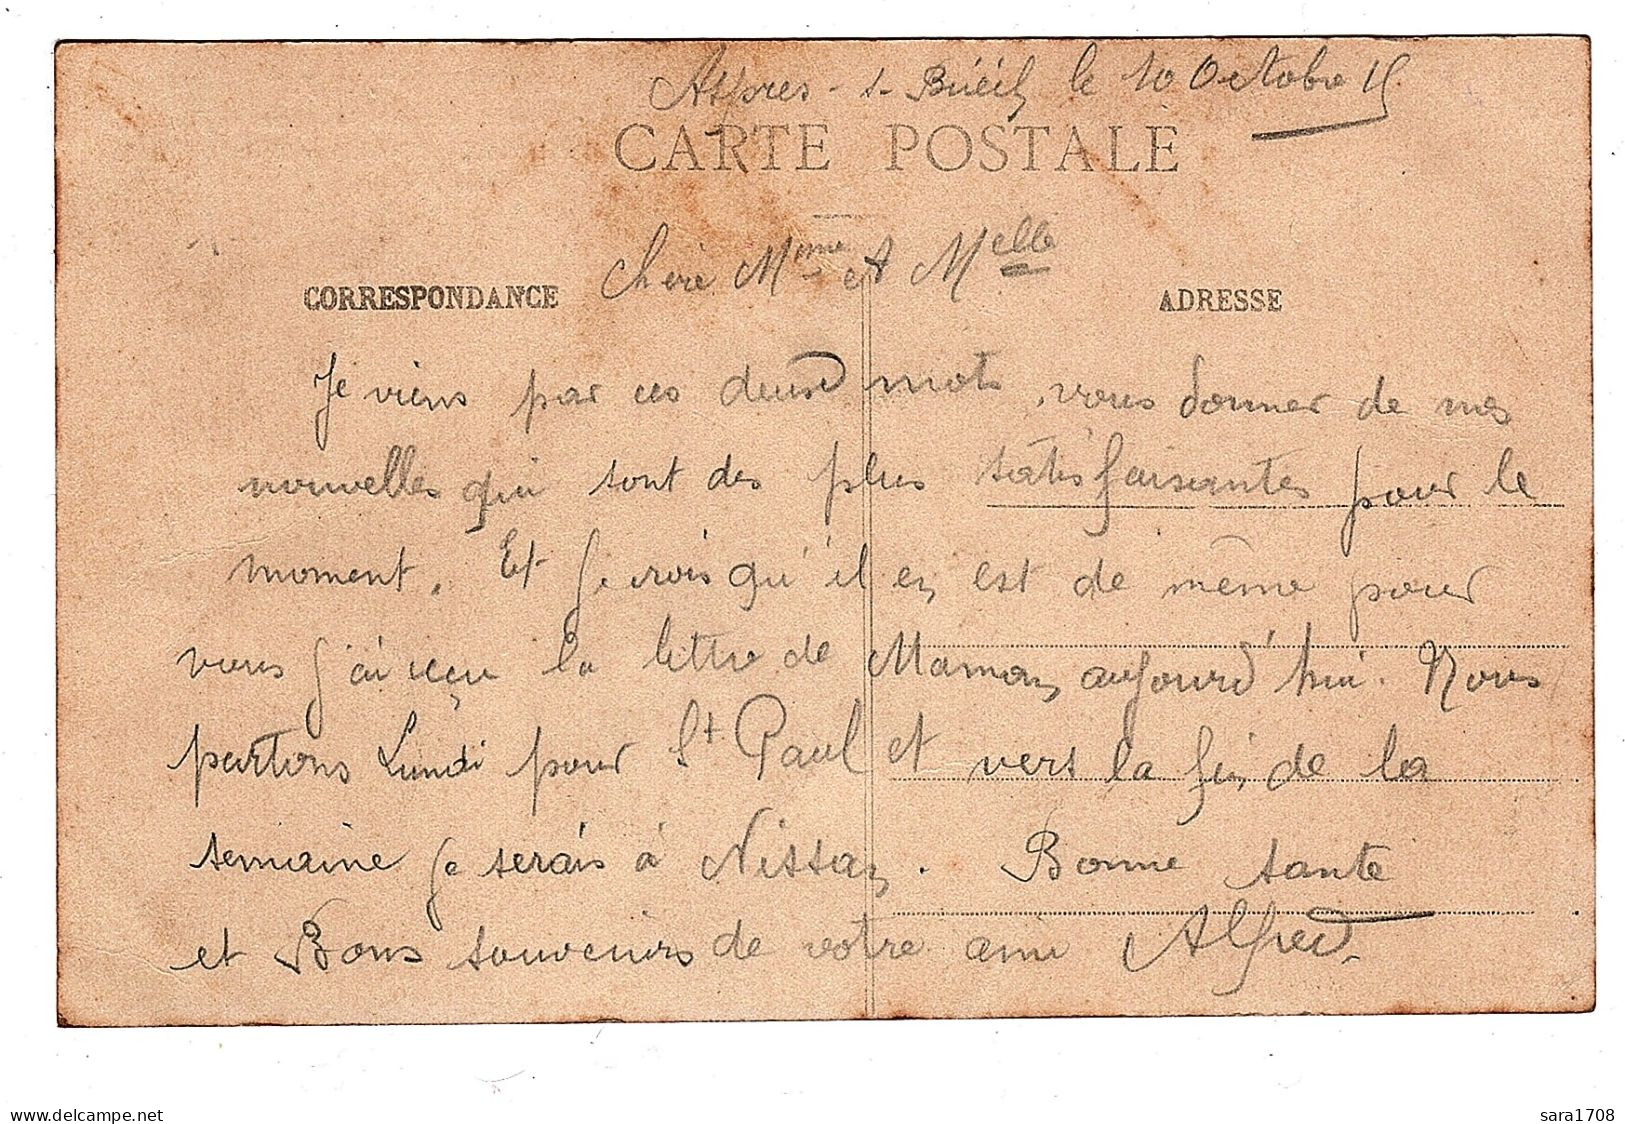 Aspres - s- Büëch le 10 Octobre 15
CARTE POSTALE
Chère Mme et Melle
CORRESPONDANCE
ADRESSE
Je viens par ces deux mots vous donner de mes
nouvelles qui sont des plus satisfaisantes pour le
moment. Et je crois qu'il en est de même pour
vous j'ai reçu la lettre de Maman aujourd'hui. Nous
partons Lundi pour St Paul et vers la fin de la
semaine je serais à Nissan. Bonne santé
et Bons souvenirs de votre ami Alfred.
delcampe.net
sara1708